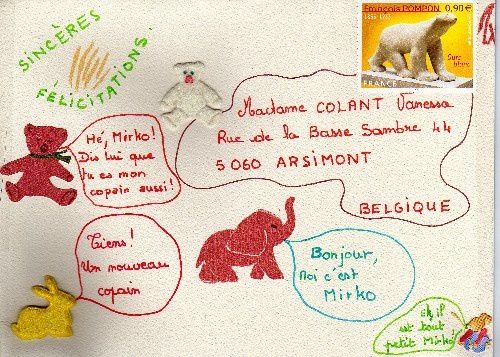 SINCÈRES
FÉLICITATIONS.
François POMPON 0,90 €
Ours
blanc
FRANCE
Madame COLANT Vanessa
Rue de la Basse Sambre 44
5060 ARSIMONT
BELGIQUE
Hé, Mirko!
Dis lui que
tu es mon
copain aussi!
Tiens!
Un nouveau
copain
Bonjour,
moi c'est
Mirko
il
est tout
petit Mirko!